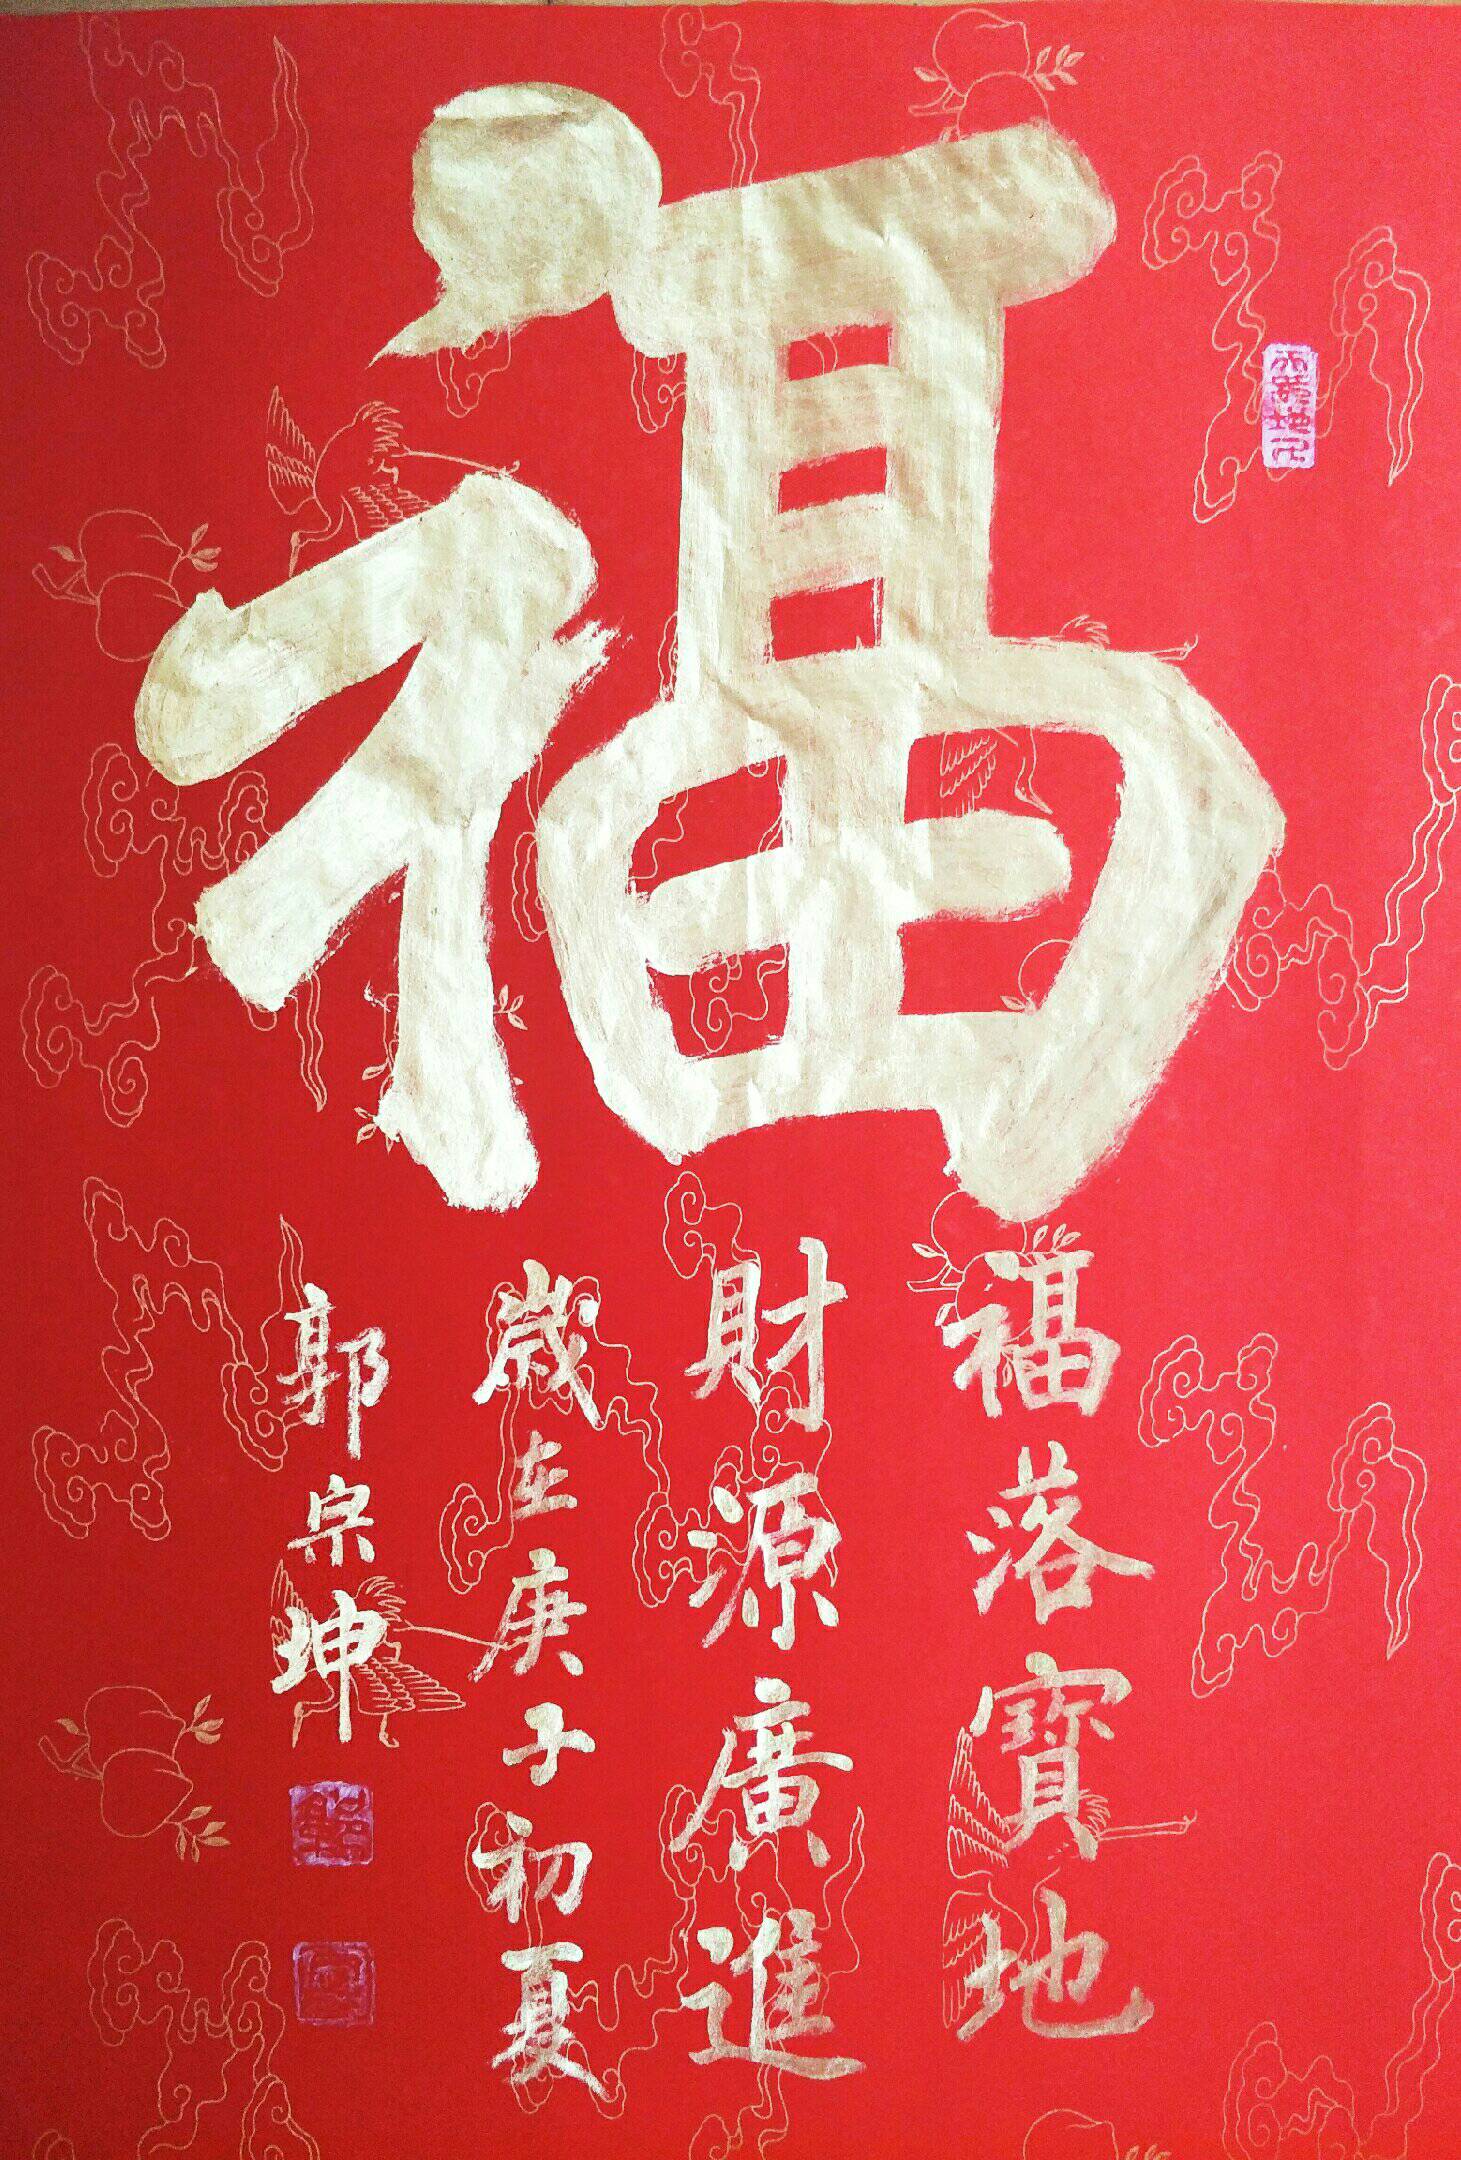 福
福落寶地
財源廣進
歲在庚子初夏
郭宗坤